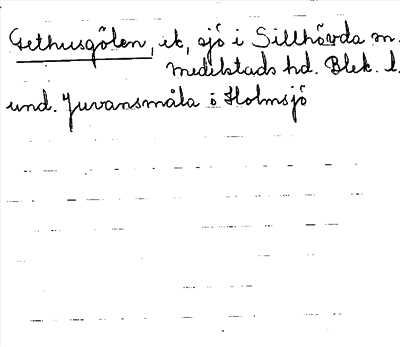 Gethusgölen, et, sjö i Sillhövda sn.
Medelstads hd. Blek. l.
und. Juvansmåla i Holmsjö